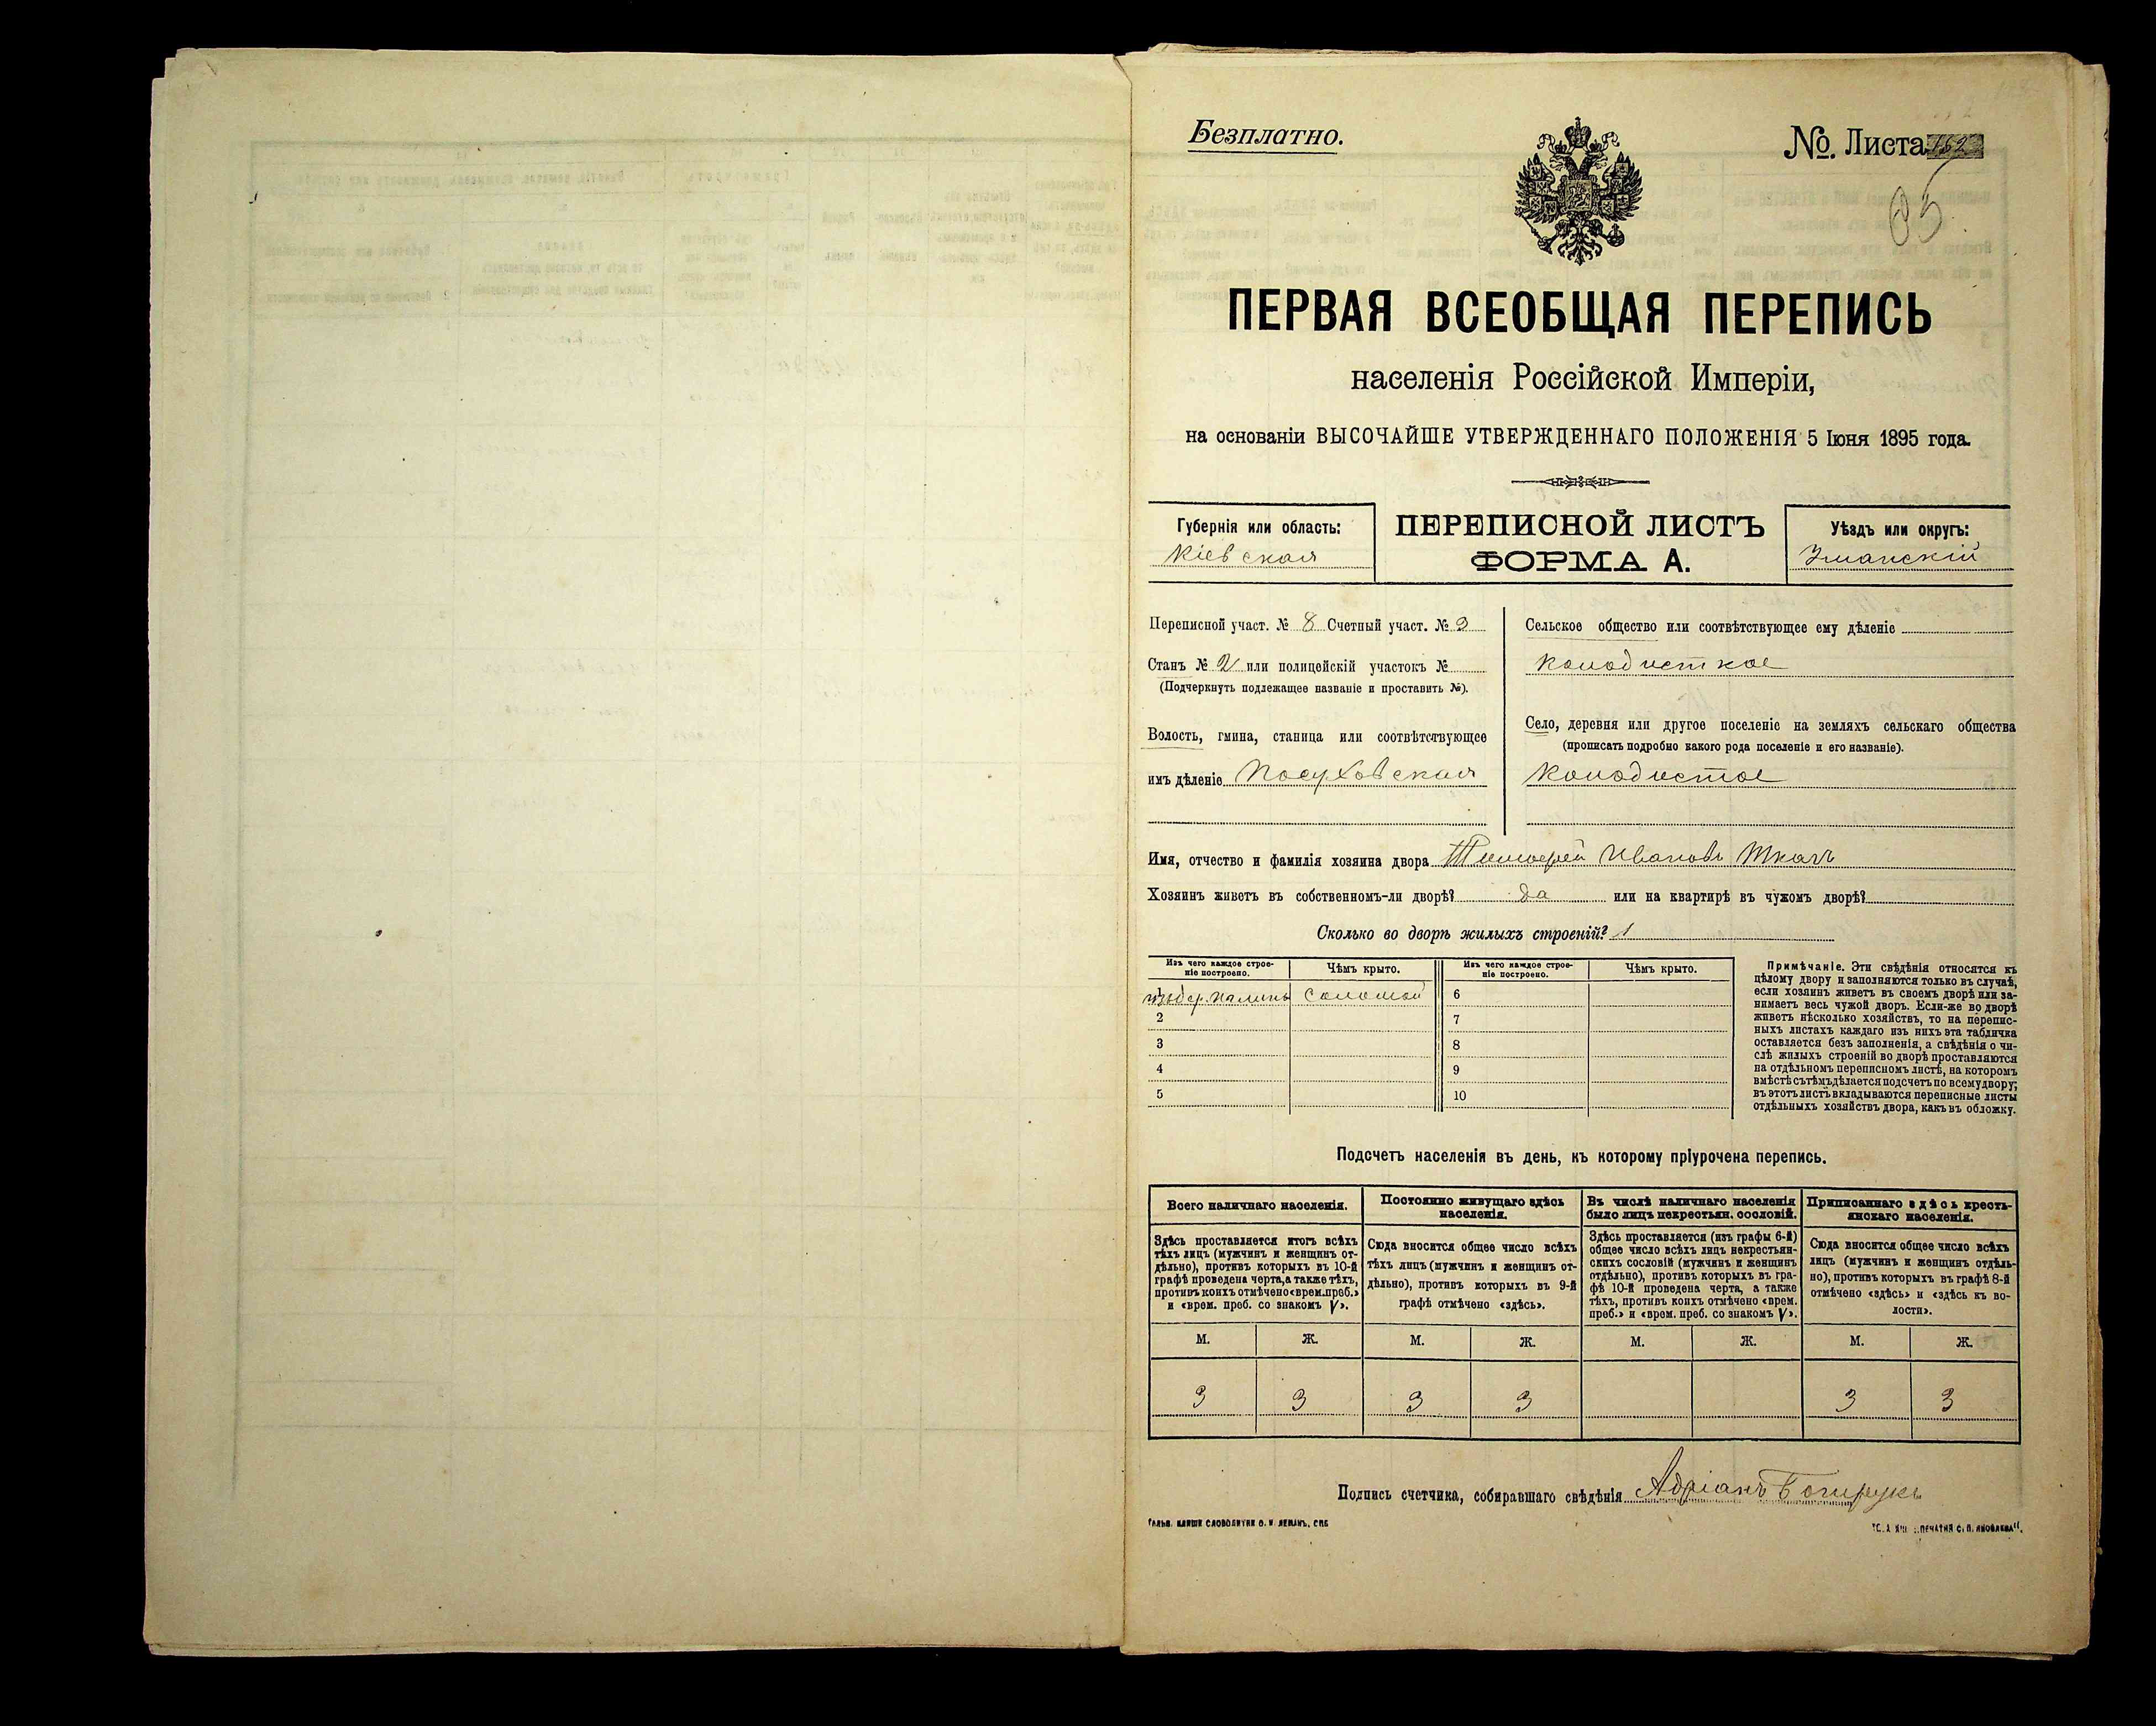 Безплатно.
№. Листа 162
85
ПЕРВАЯ ВСЕОБЩАЯ ПЕРЕПИСЬ
населенія Россійской Имперіи,
на основаніи ВЫСОЧАЙШЕ УТВЕРЖДЕННАГО ПОЛОЖЕНІЯ 5 Іюня 1895 года.
Губернія или область:
Кіевская
ПЕРЕПИСНОЙ ЛИСТЪ
ФОРМА А.
Уѣздъ или округъ:
Уманскій
Переписной участ. № 8 Счетный участ. № 3
Станъ № 2 или полицейскій участокъ №
(Подчеркнуть подлежащее названіе и проставить №).
Волость, гмина, станица или соотвѣтствующее
имъ дѣленіе Посуховская
Сельское общество или соотвѣтствующее ему дѣленіе
Колодисткое
Село, деревня или другое поселеніе на земляхъ сельскаго общества
(прописать подробно какого рода поселеніе и его названіе).
Колодистое
Имя, отчество и фамилія хозяина двора Тимофей Ивановъ Ткачъ
Хозяинъ живетъ въ собственномъ-ли дворѣ? да или на квартирѣ въ чужомъ дворѣ?
Сколько во дворѣ жилыхъ строеній? 1
Изъ чего каждое строе-
ніе построено.
Чѣмъ крыто.
Изъ чего каждое строе-
ніе построено.
Чѣмъ крыто.
1 Соломой
2
3
4
5
6
7
8
9
10
Примѣчаніе. Эти свѣдѣнія относятся къ
цѣлому двору и заполняются только въ случаѣ,
если хозяинъ живетъ въ своемъ дворѣ или за-
нимаетъ весь чужой дворъ. Если-же во дворѣ
живетъ нѣсколько хозяйствъ, то на перепис-
ныхъ листахъ каждаго изъ нихъ эта табличка
оставляется безъ заполненія, а свѣдѣнія о чи-
слѣ жилыхъ строеній во дворѣ проставляются
на отдѣльномъ переписномъ листѣ, на которомъ
вмѣстѣ сътѣмъ дѣлается подсчетъ по всему двору;
въ этотъ листъ вкладываются переписные листы
отдѣльныхъ хозяйствъ двора, какъ въ обложку.
Подсчетъ населенія въ день, къ которому пріурочена перепись.
Всего наличнаго населенія.
Здѣсь проставляется итогъ всѣхъ
тѣхъ лицъ (мужчинъ и женщинъ от-
дѣльно), противъ которыхъ въ 10-й
графѣ проведена черта, а также тѣхъ,
противъ коихъ отмѣчено «врем. преб.»
и «врем. преб. со знакомъ V».
Постоянно живущаго здѣсь
населенія.
Сюда вносится общее число всѣхъ
тѣхъ лицъ (мужчинъ и женщинъ от-
дѣльно), противъ которыхъ въ 9-й
графѣ отмѣчено «здѣсь».
Въ числѣ наличнаго населенія
было лицъ некрестьян. сословій.
Здѣсь проставляется (изъ графы 6-й)
общее число всѣхъ лицъ некрестьян-
скихъ сословій (мужчинъ и женщинъ
отдѣльно), противъ которыхъ въ гра-
фѣ 10-й проведена черта, а также
тѣхъ, противъ коихъ отмѣчено «врем.
преб.» и «врем. преб. со знакомъ V».
Приписаннаго здѣсь кресть-
янскаго населенія.
Сюда вносится общее число всѣхъ
лицъ (мужчинъ и женщинъ отдѣль-
но), противъ которыхъ въ графѣ 8-й
отмѣчено «здѣсь» и «здѣсь къ во-
лости».
М. Ж. М. Ж. М. Ж. М. Ж.
3 3 3 3 3 3
Подпись счетчика, собиравшаго свѣдѣнія Адріанъ